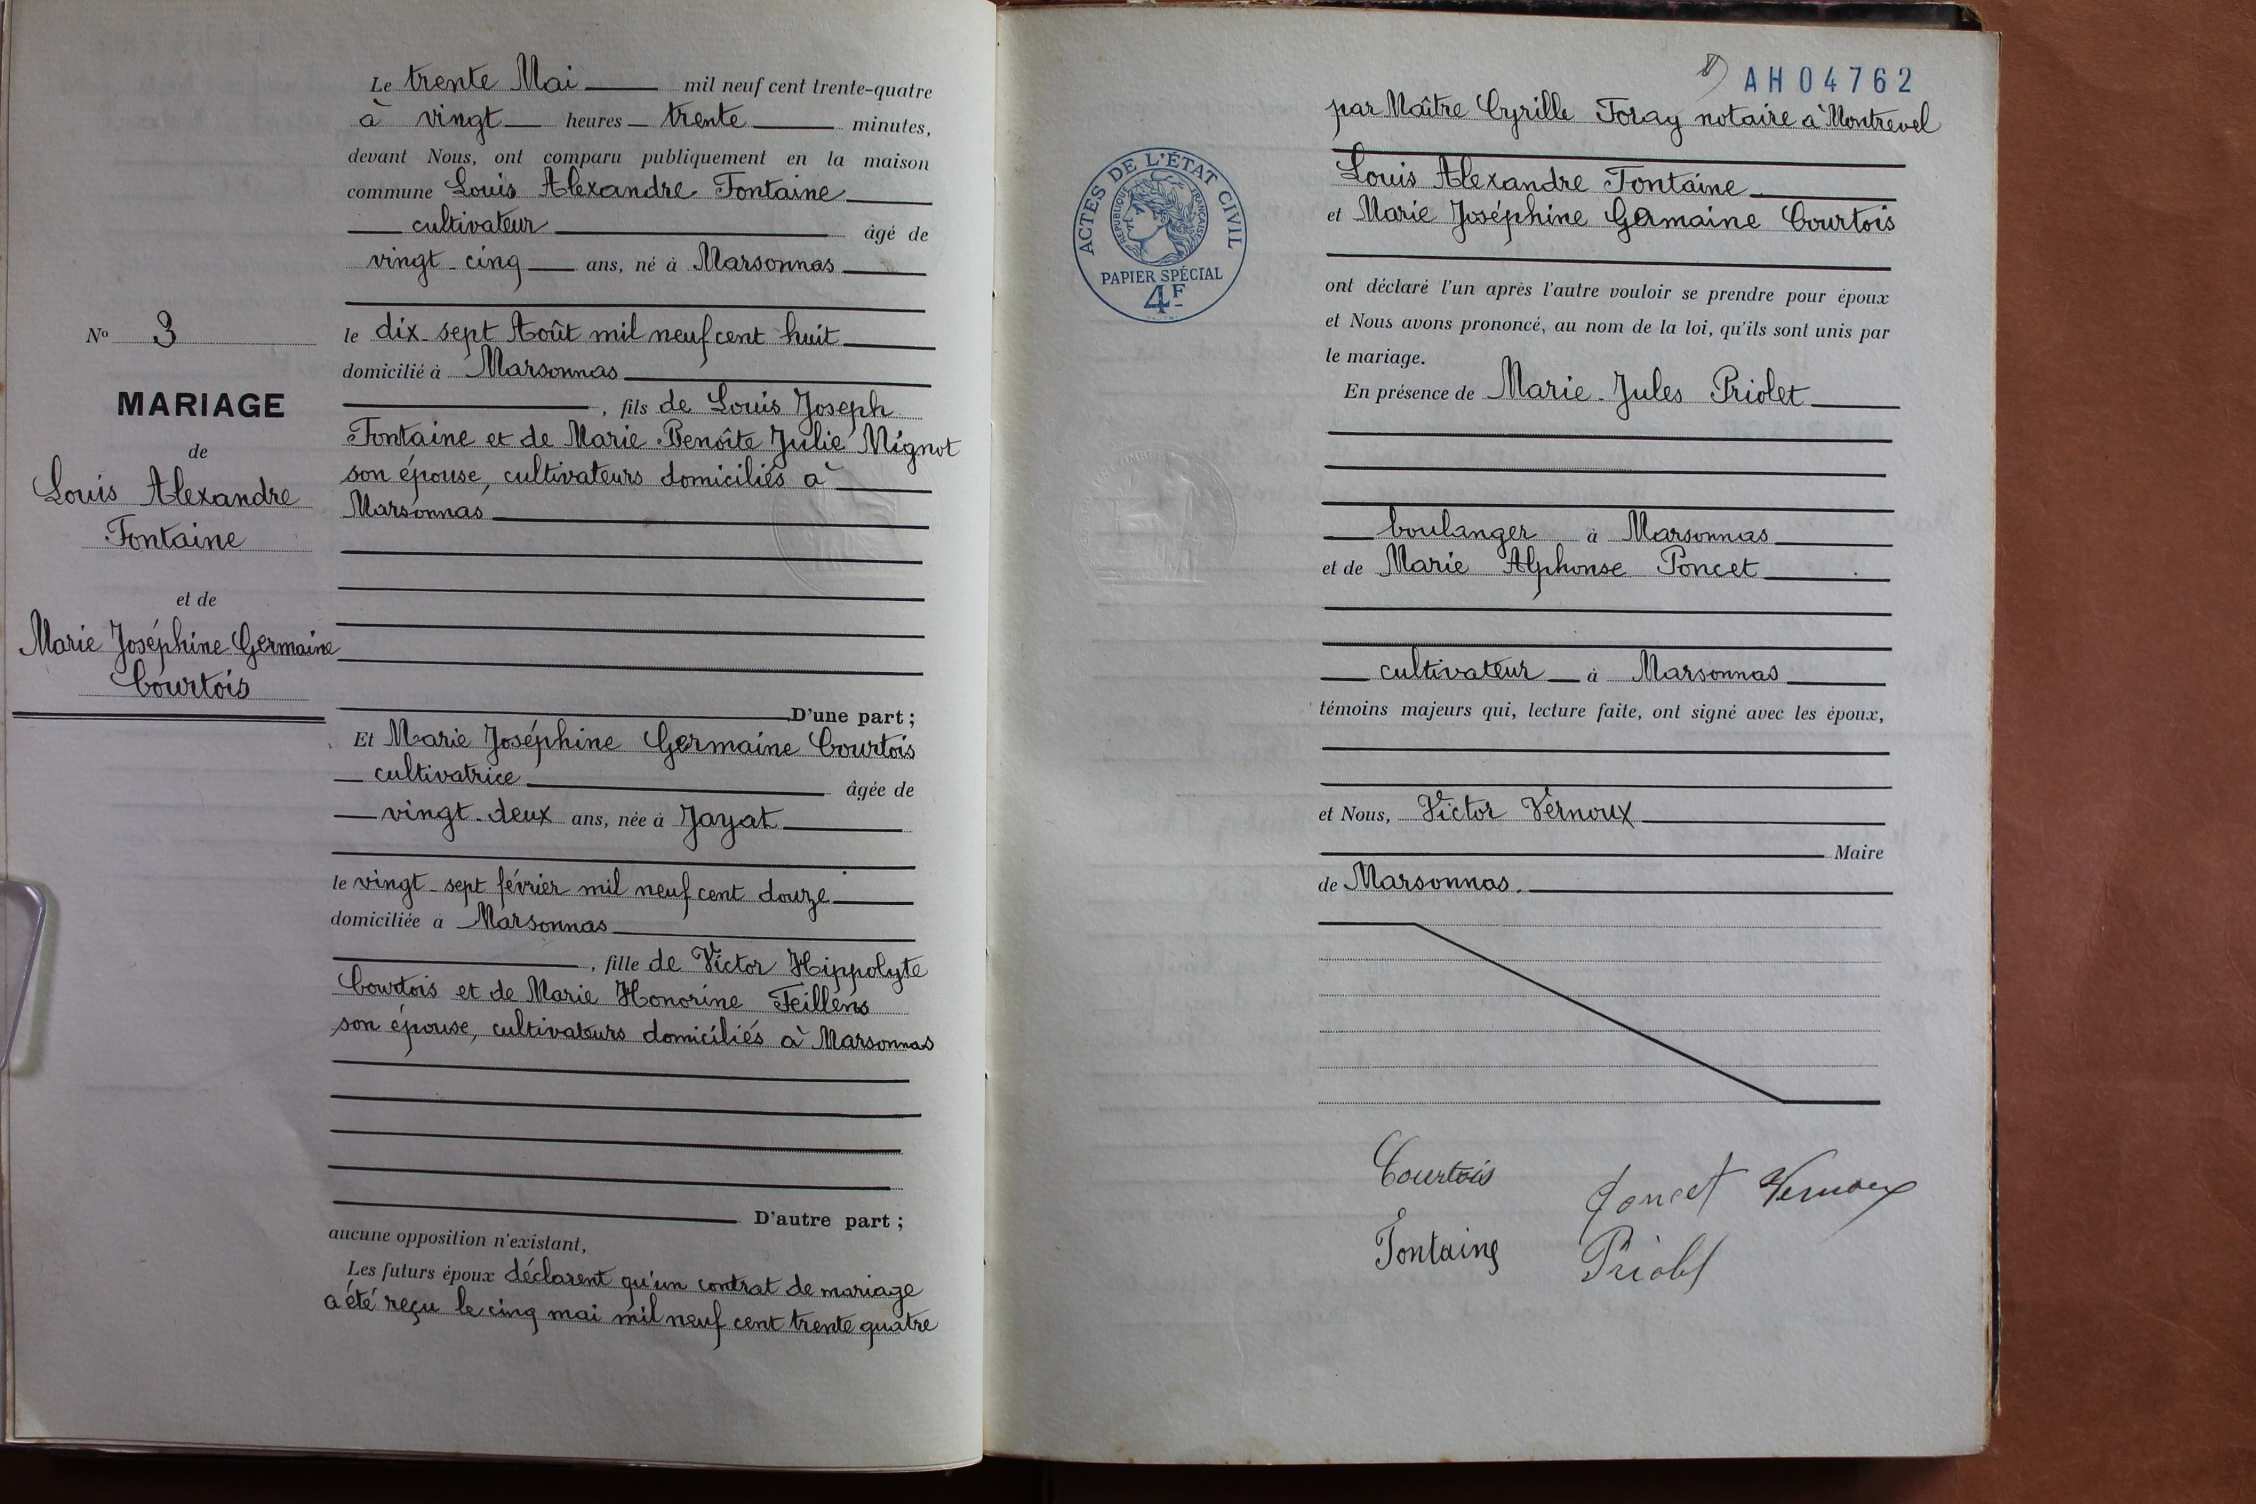 N° 3
MARIAGE
de
Louis Alexandre
Fontaine
et de
Marie Joséphine Germaine
Courtois
Le trente Mai mil neuf cent trente-quatre
à vingt heures trente minutes,
devant Nous, ont comparu publiquement en la maison
commune Louis Alexandre Fontaine
cultivateur âgé de
vingt-cinq ans, né à Marsonnas
le dix-sept Août mil neuf cent huit
domicilié à Marsonnas
, fils de Louis Joseph
Fontaine et de Marie Benoîte Julie Mignot
son épouse, cultivateurs domiciliés à
Marsonnas
D'une part ;
Et Marie Joséphine Germaine Courtois
cultivatrice âgée de
vingt-deux ans, née à Jayat
le vingt-sept février mil neuf cent douze
domiciliée à Marsonnas
, fille de Victor Hippolyte
Courtois et de Marie Honorine Feillens
son épouse, cultivateurs domiciliés à Marsonnas
D'autre part ;
aucune opposition n'existant,
Les futurs époux déclarent qu'un contrat de mariage
a été reçu le cinq mai mil neuf cent trente quatre
AH04762
par Maître Cyrille Foray notaire à Montrevel
Louis Alexandre Fontaine
et Marie Joséphine Germaine Courtois
ACTES DE L'ÉTAT CIVIL
RÉPUBLIQUE FRANÇAISE
PAPIER SPÉCIAL
4F
ont déclaré l'un après l'autre vouloir se prendre pour époux
et Nous avons prononcé, au nom de la loi, qu'ils sont unis par
le mariage.
En présence de Marie-Jules Priolet
boulanger à Marsonnas
et de Marie Alphonse Poncet
cultivateur à Marsonnas
témoins majeurs qui, lecture faite, ont signé avec les époux,
et Nous, Victor Vernoux
Maire
de Marsonnas.
Courtois
Poncet Vernoux
Fontaine
Priolet